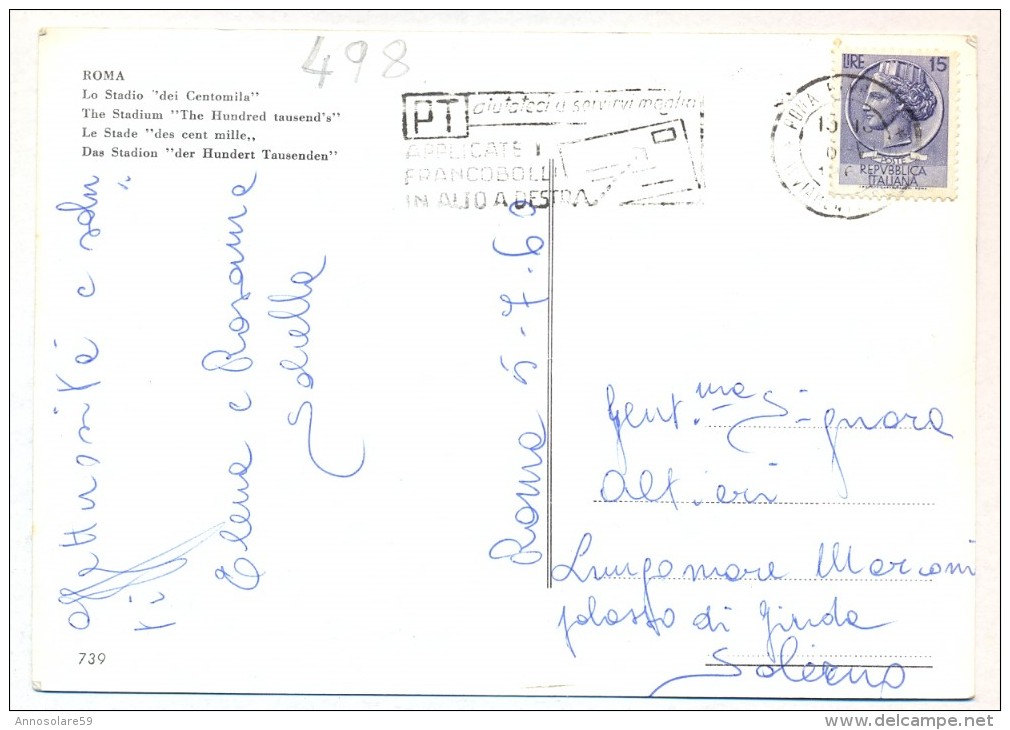 498
ROMA
Lo Stadio "dei Centomila"
The Stadium "The Hundred tausend's"
Le Stade "des cent mille„
Das Stadion "der Hundert Tausenden"
PT aiutateci a servirvi meglio
APPLICATE I
FRANCOBOLLI
IN ALTO A DESTRA
LIRE 15
POSTE
REPVBBLICA
ITALIANA
ROMA
Affettuosità e salu
ti
Elena e Rosanna
Roma 5-7-60
Gent.ma Signora
Altieri
Lungomare Marconi
palazzo di Giuda
Salerno
739
Annosolare59
delcampe.net